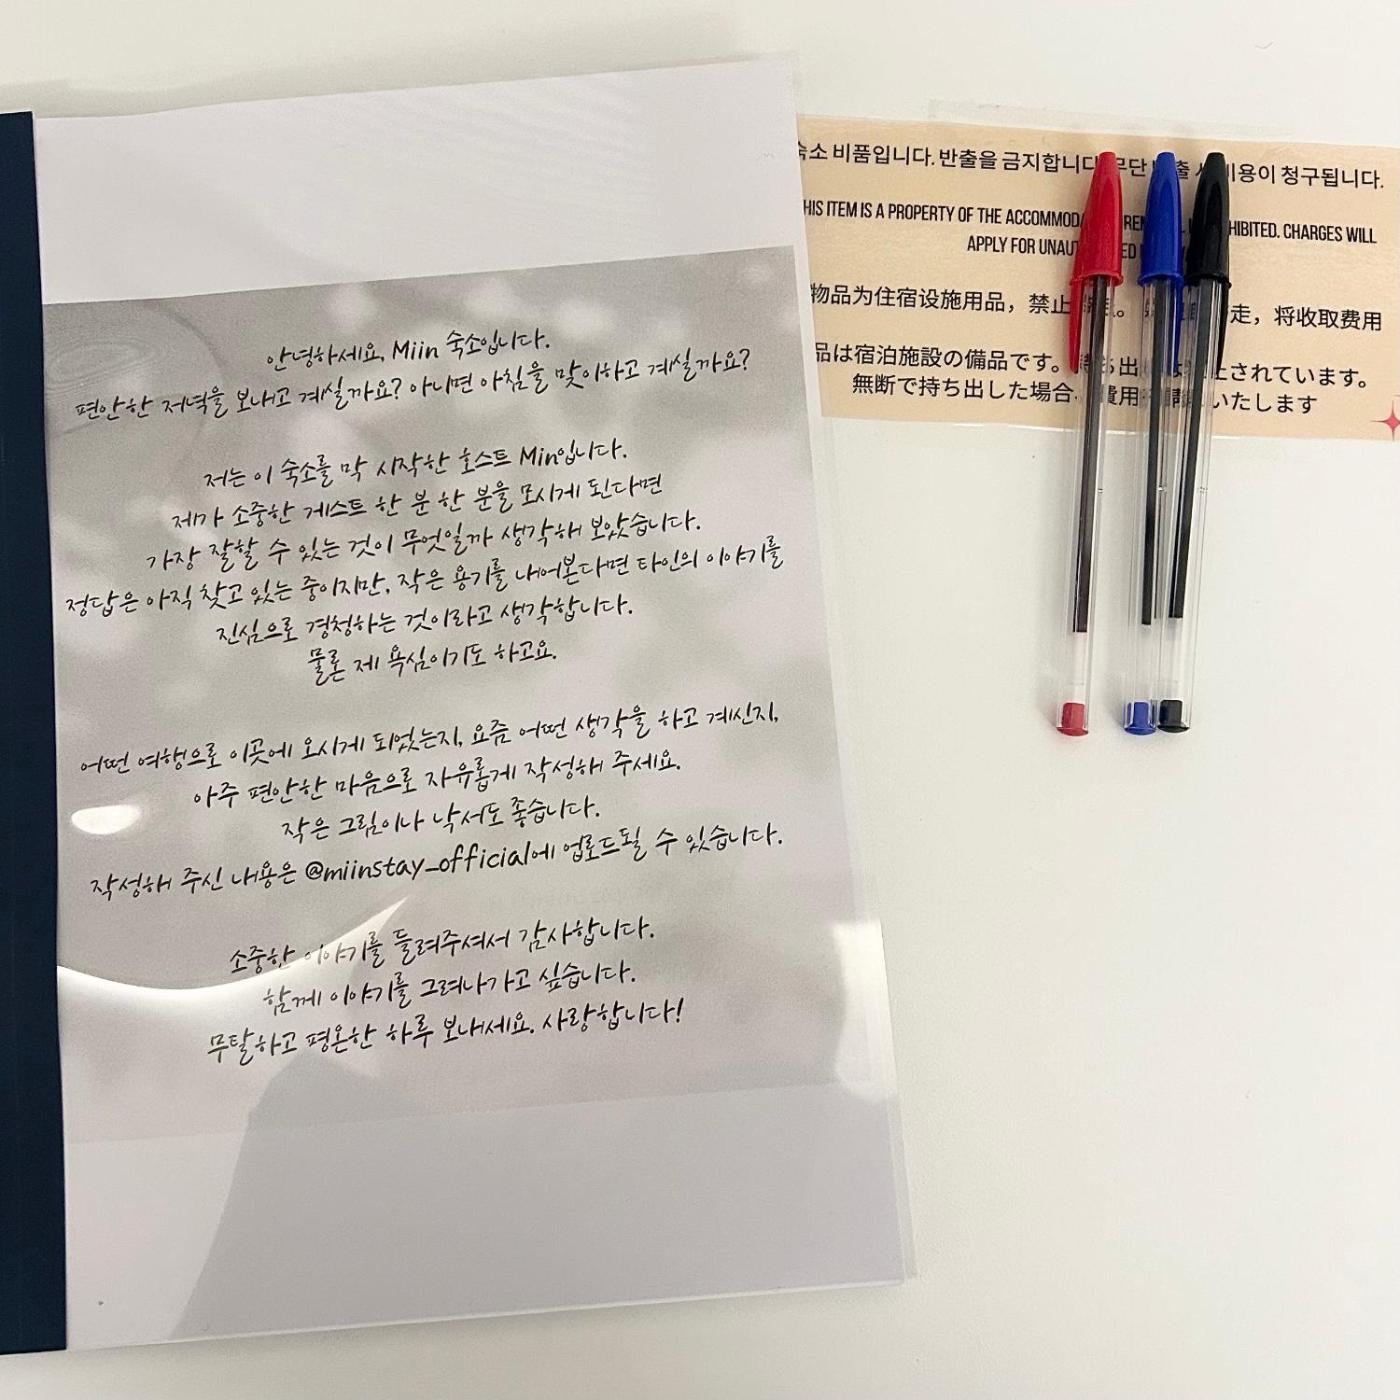 안녕하세요, Miin 숙소입니다.
편안한 저녁을 보내고 계실까요? 아니면 아침을 맞이하고 계실까요?
저는 이 숙소를 막 시작한 호스트 Min입니다.
제가 소중한 게스트 한 분 한 분을 모시게 된다면
가장 잘할 수 있는 것이 무엇일까 생각해 보았습니다.
정답은 아직 찾고 있는 중이지만, 작은 용기를 내어본다면 타인의 이야기를
진심으로 경청하는 것이라고 생각합니다.
물론 제 욕심이기도 하고요.
어떤 여행으로 이곳에 오시게 되었는지, 요즘 어떤 생각을 하고 계신지,
아주 편안한 마음으로 자유롭게 작성해 주세요.
작은 그림이나 낙서도 좋습니다.
작성해 주신 내용은 @miinstay_official에 업로드될 수 있습니다.
소중한 이야기를 들려주셔서 감사합니다.
함께 이야기를 그려나가고 싶습니다.
무탈하고 평온한 하루 보내세요. 사랑합니다!
숙소 비품입니다. 반출을 금지합니다. 무단 시 비용이 청구됩니다.
THIS ITEM IS A PROPERTY OF THE CHARGES WILL
APPLY FOR
物品为住宿设施用品，禁止 走，将收取费用
品は宿泊施設の備品です。 されています。
無断で持ち出した場合、費用 いたします